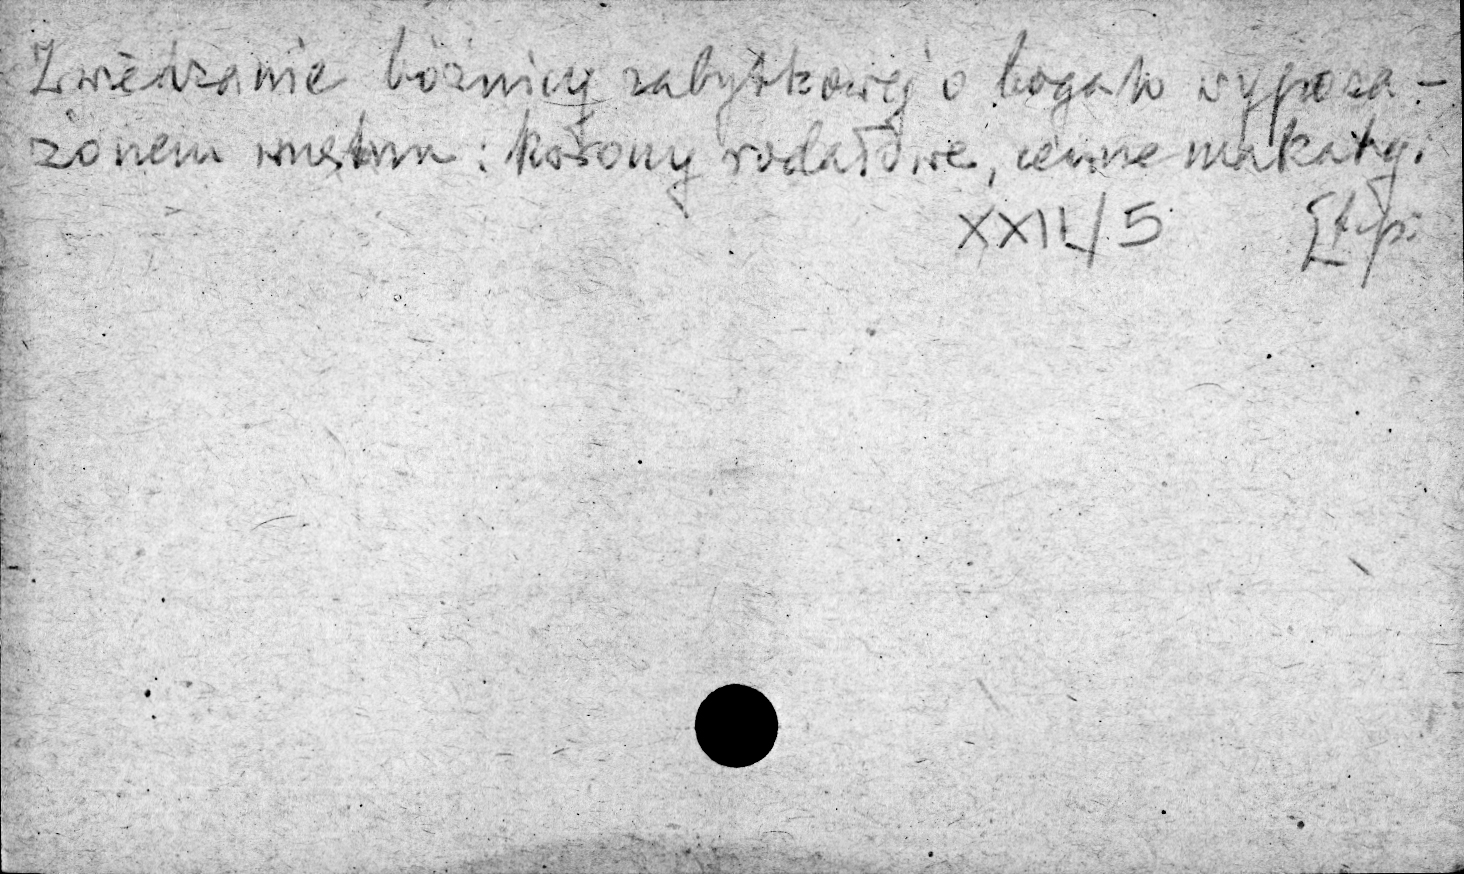 Zwiedzanie bóżnicy zabytkowej o bogato wyposa-
żonem wnętrzu: korony rodałowe, cenne makaty.
XXII/5